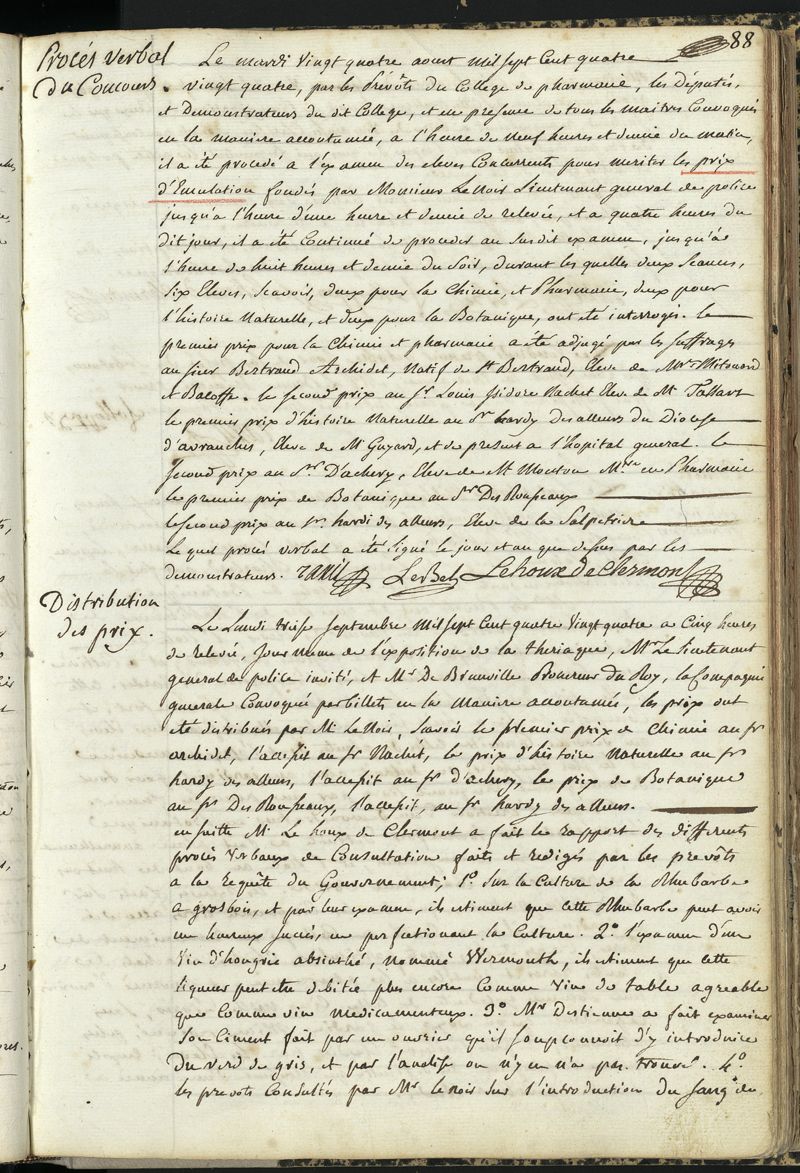 88
Procés verbal
Du Concours.
Le mardi vingt quatre aoust mil sept Cent quatre
vingt quatre, par les Prévôts du College de pharmacie, les Députés,
et Demonstrateurs du dit College, et en presence de tous les maitres Convoqués
en la maniere accoutumée, a l'heure de neuf heures et demie du matin,
il a été procédé a l'examen des eleves Concurrents pour meriter les prix
d'Emulation fondés par Monsieur Le Noir Lieutenant general de police
jusqu'a l'heure d'une heure et demie de relevée, et a quatre heures du
dit jour, il a été Continué de proceder au susdit examen, jusqu'à
l'heure de huit heures et demie du Soir, durant les quelles deux Seances,
Six Eleves, Scavoir, deux pour la Chimie, et Pharmacie, deux pour
l'histoire Naturelle, et deux pour la Botanique, ont été interrogés. Le
premier prix pour la Chimie et pharmacie a été adjugé par les suffrages
au sieur Bertrand Archidet, Natif de St Bertrand, Eleve de Mrs Mitouard
et Baloffe. le second prix au Sr. Louis Isidore Nachet Eleve de Mr Tassart
le premier prix d'histoire Naturelle au Sr hardy des alleurs du Diocese
d'avranches, Eleve de Mr Guyard, et de present a l'hopital general. Le
second prix au Sr. D'achery, Eleve de Mr Mouton Mtre en Pharmacie
le premier prix de Botanique au Sr Des Rousseaux
le second prix au Sr. hardi des alleurs, Eleve de la Salpetriere
Le quel procés verbal a été signé le jour et an que dessus par les
demonstrateurs. LeBel Lehoux de Clermont
Distribution
des prix.
Le Lundi treise septembre mil sept Cent quatre vingt quatre a Cinq heures
de relevée, Jour meme de l'exposition de la theriaque, Mr Le Lieutenant
general de police invité, et Mr De Brunville Procureur du Roy, la Compagnie
generale Convoquée par billets en la Maniere accoutumée, les prix ont
été distribués par Mr Le Noir, Scavoir le premier prix de Chimie au sr
archidet, l'accessit au sr Nachet, le prix d'histoire Naturelle au sr
hardy des alleurs, l'accessit au sr d'achery, le prix de Botanique
au sr Des Rousseaux, l'accessit, au sr hardy des alleurs.
en suitte Mr Le houx de Clermont a fait le rapport des differents
procés Verbaux de Consultation faits et redigés par les prevôts
a la requête du Gouvernement; 1.° Sur la Culture de la Rhubarbe
a grosbois, et par leur examen, ils estiment que cette Rhubarbe peut avoir
un heureux succés, en perfectionant la Culture. 2.° l'examen d'un
Vin d'hongrie absinthé, nommé Wermouth, ils estiment que cette
liqueur peut etre debitée plus encore Comme Vin de table agreable
que Comme vin medicamenteux. 3.° Mr Destienne a fait examiner
Son Ciment fait par un ouvrier qu'il soupconnoit d'y introduire
Du verd de gris, et par l'analise on n'y en n'a pas trouvé. 4.°
les prevots Consultés par Mr le noir Sur l'introduction du sang de